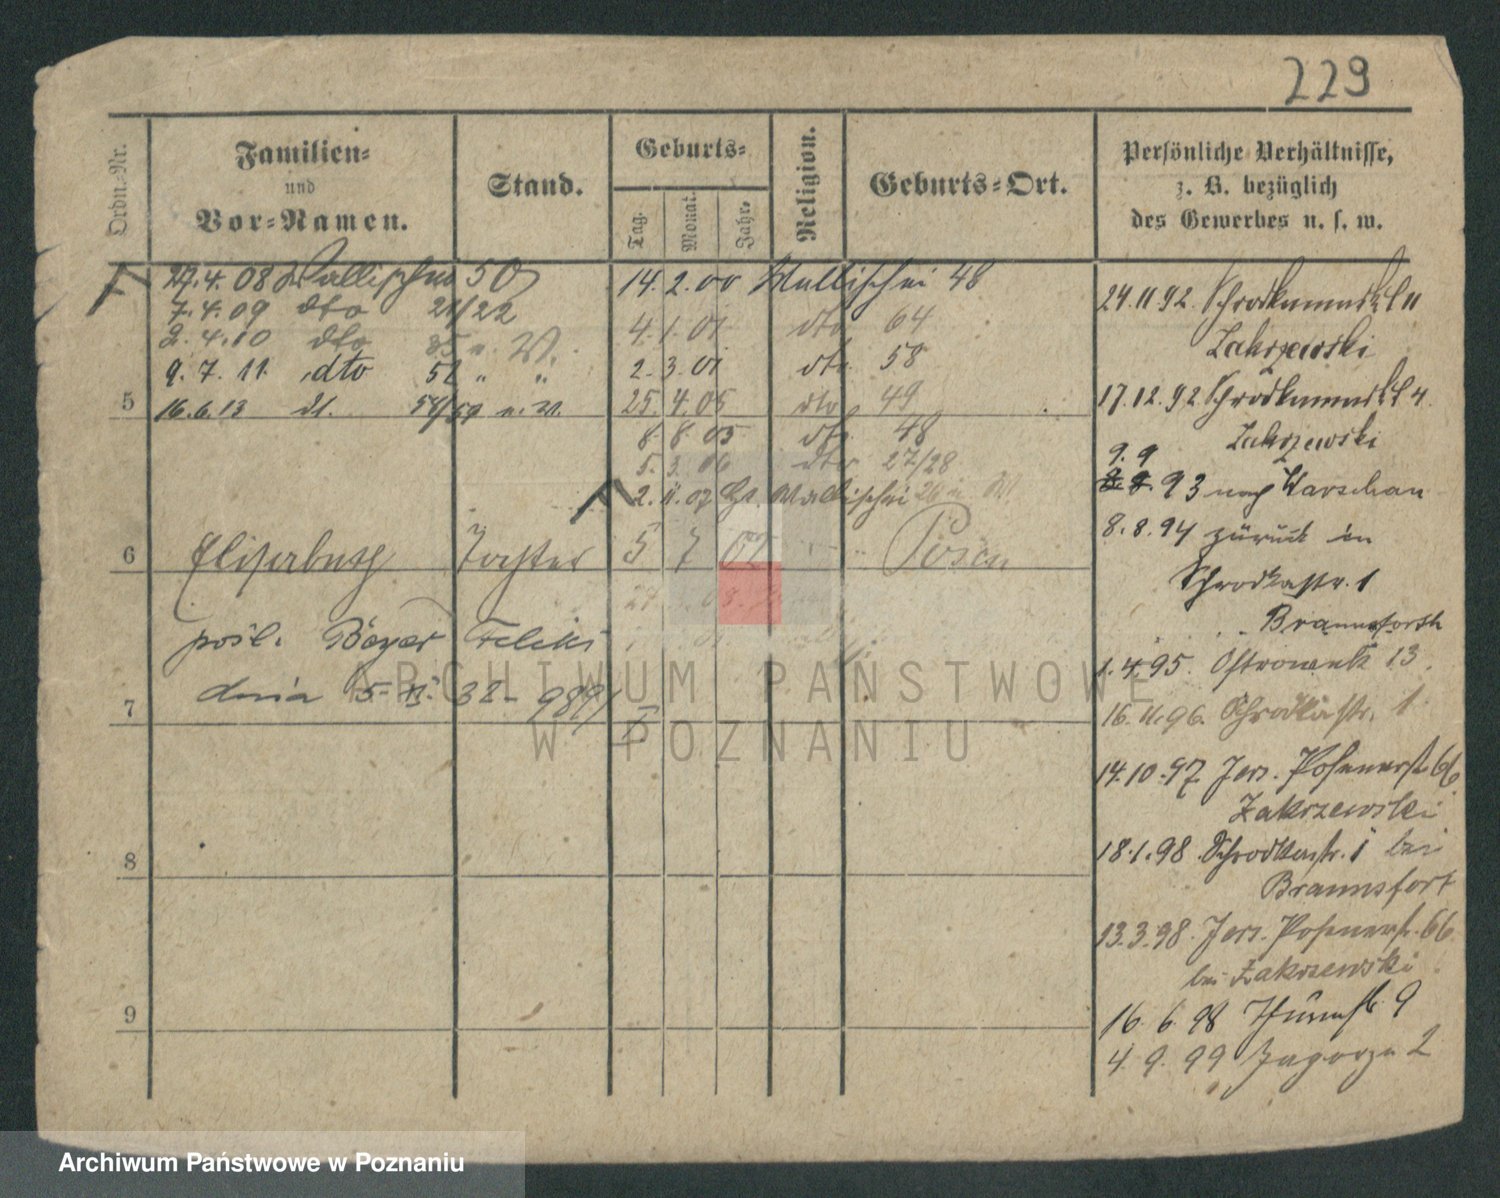 229
Ordn.-Nr.
Familien-
und
Vor-Namen.
Stand.
Geburts-
Tag.
Monat.
Jahr.
Religion.
Geburts-Ort.
Persönliche Verhältnisse,
z. B. bezüglich
des Gewerbes u. s. w.
4.08 Wallischei 50
7.4.09 dto 21/22
2.4.10 dto
9.7.11. dto 52 " "
5 16.6.13 dt.
14.2.00 Wallischei 48
4.1.01. dto 64
2.3.01 dto 58
25.4.05 dto 49
8.8.05 dto 48
5.3.06 dto 27/28
2.11.07 Wallischei
6 Elisabeth Tochter 5 7 Posen
pośl. Feliks
7 dnia 32-
8
9
24.11.92. Schrodkamarkt 11
Zakrzewski
17.12.92 Schrodkamarkt 4.
Zakrzewski
9.9
93 nach Warschau
8.8.94 zurück in
Schrodkastr. 1
Braunsforth
1.4.95. Ostrowek 13.
16.11.96. Schrodkastr. 1
14.10.97 Jers. Posenerst. 66
Zakrzewski
18.1.98 Schrodkastr. 1 bei
Braunsfort
13.3.98. Jers. Posenerst. 66
bei Zakrzewski
16.6.98 9
4.9.99 Zagorze 2
ARCHIWUM PAŃSTWOWE
W POZNANIU
Archiwum Państwowe w Poznaniu